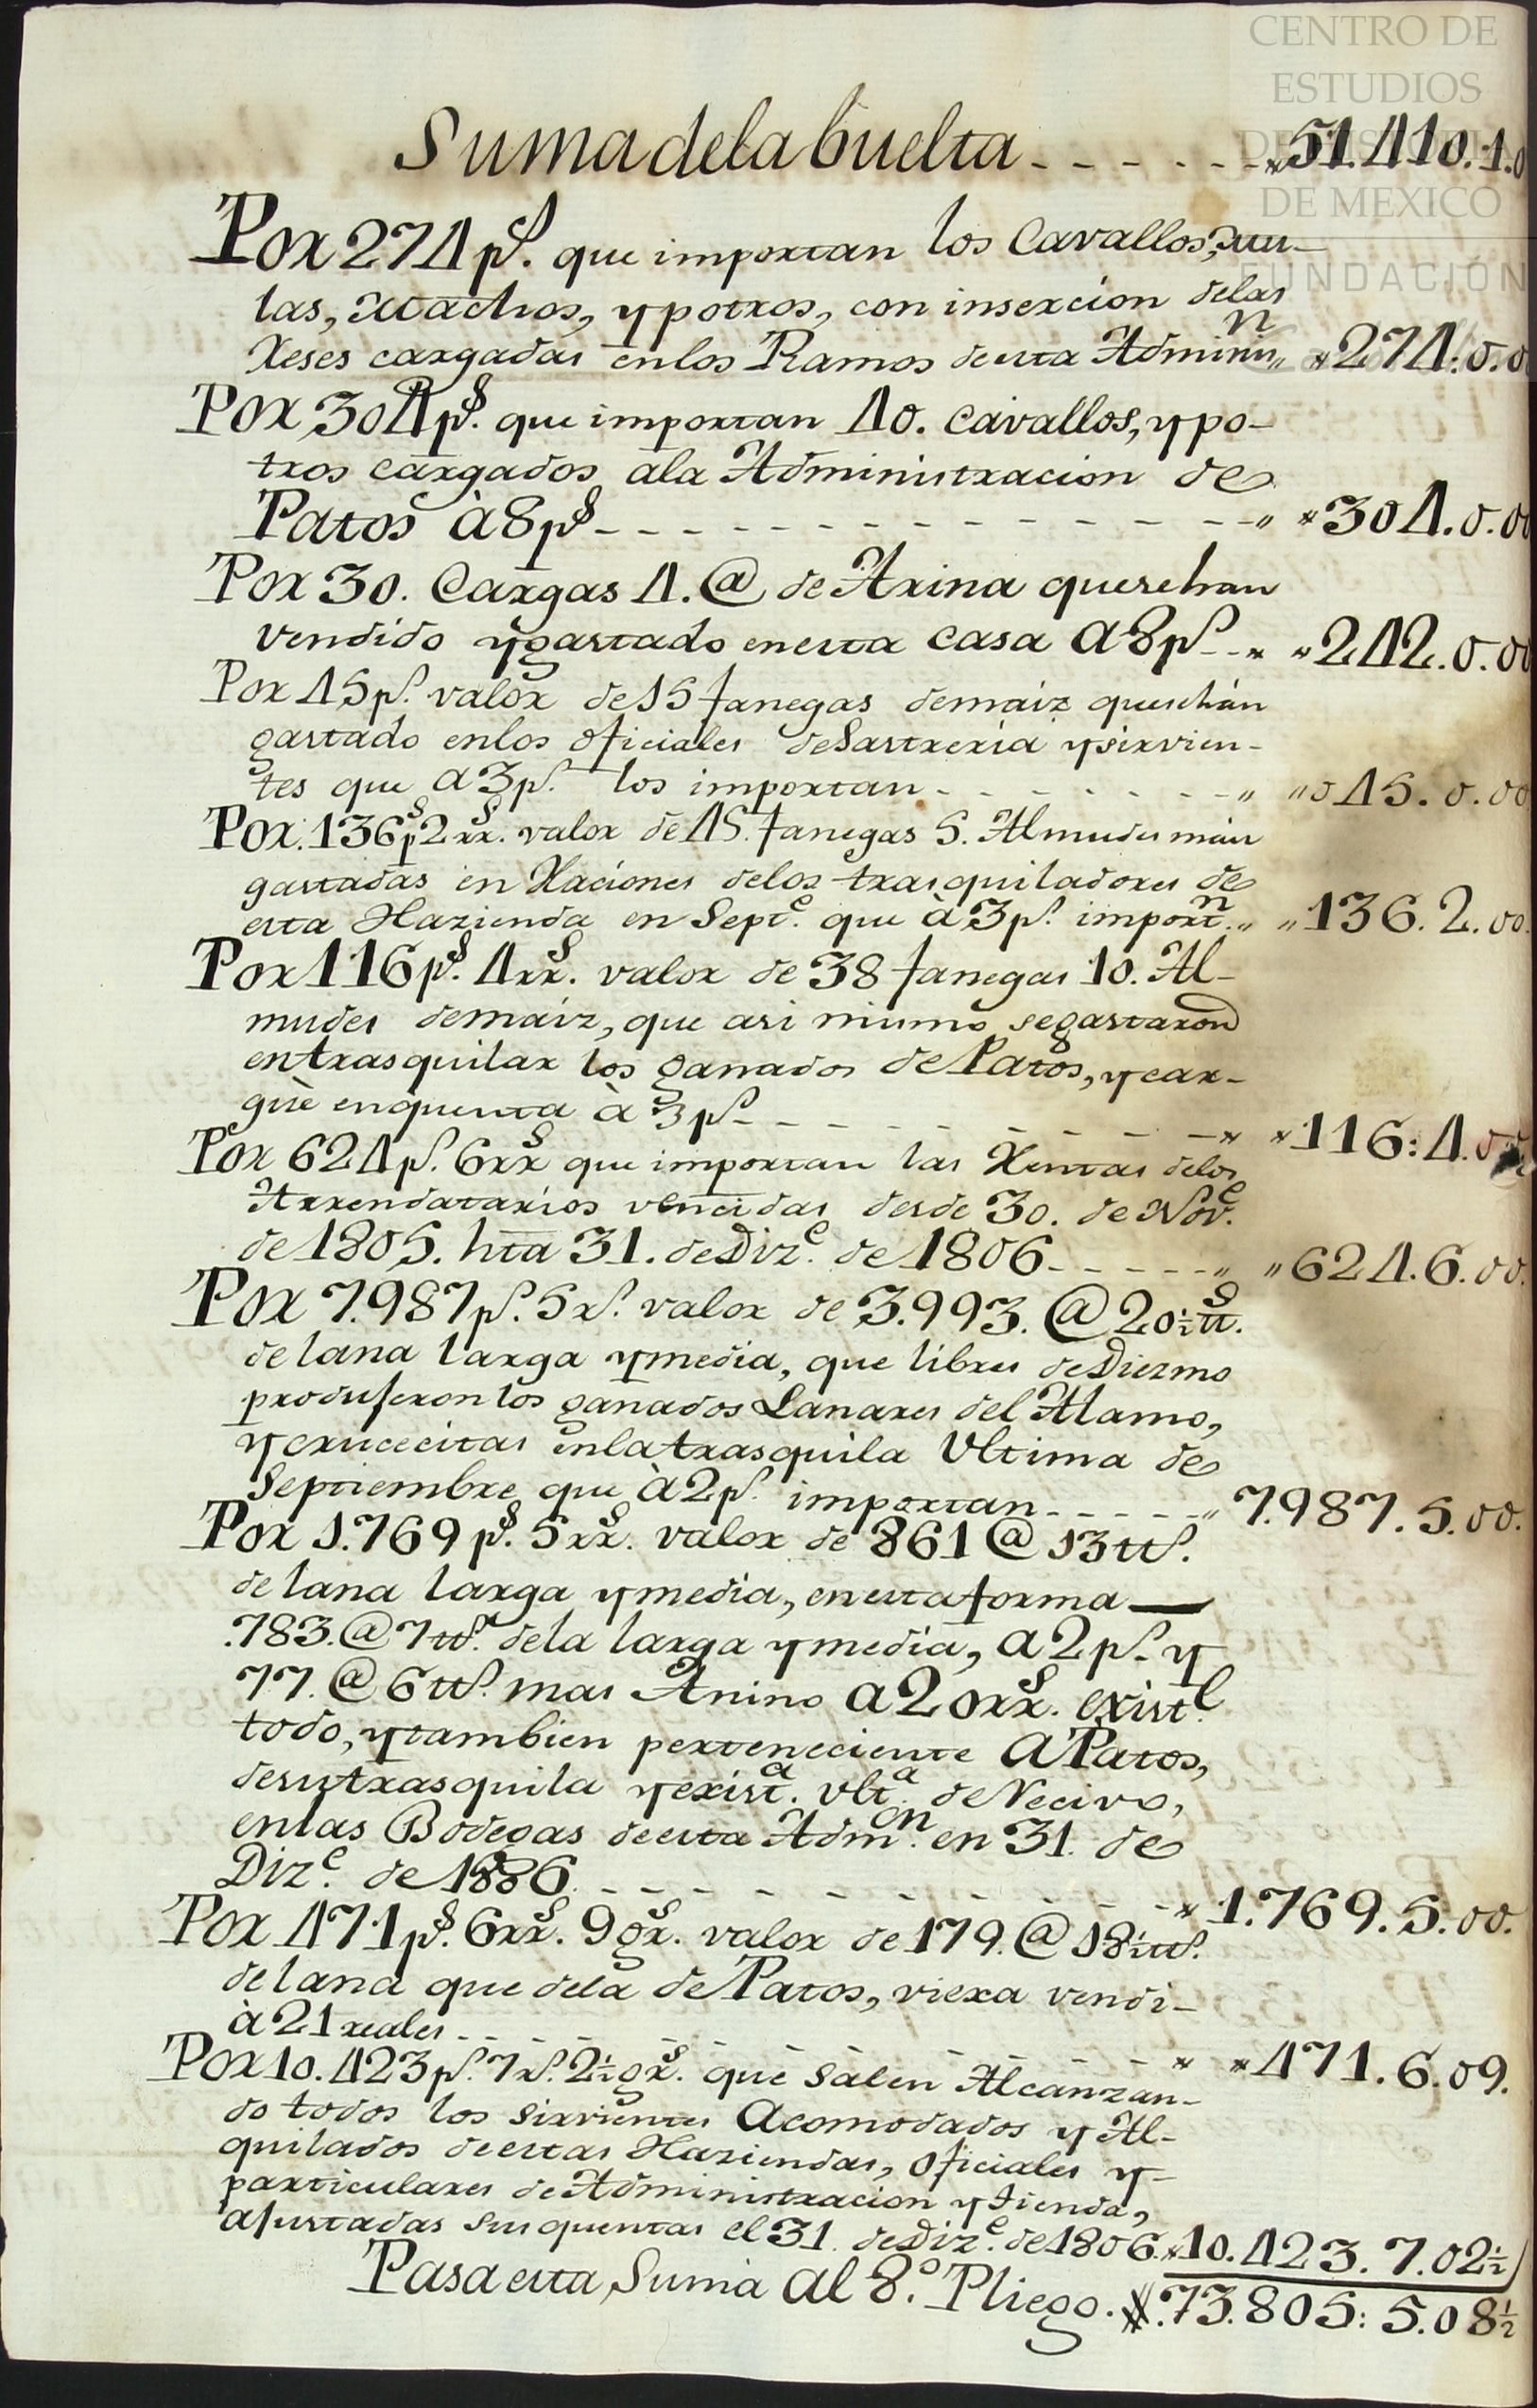 CENTRO DE
ESTUDIOS
DE HISTORIA
DE MEXICO
FUNDACIÓN
Suma dela buelta - - - - - - 51.410.1.0
Por 274 ps. que importan los Cavallos, mu-
las, Machos, y potros, con insercion delas
Reses cargadas enlos Ramos de esta Adminisn 274.0.0
Por 304 ps. que importan 40. cavallos, y po-
tros cargados ala Administracion de
Patos à 8 ps - - - - - - - - - - 304.0.00
Por 30. Cargas 4. @ de Arina que se han
vendido y gastado en esta casa a 8 ps - - 242.0.00
Por 45 ps. valor de 15 fanegas de maiz que se hán
gastado enlos oficiales de Sastreria y sirvien-
tes que a 3 ps. los importan - - - - - - - 045.0.00
Por 136 ps 2 rrs. valor de 45. fanegas 5. Almudes maiz
gastadas en Raciones delos trasquiladores de
esta Hazienda en Septe. que à 3 ps. importn. 136.2.00.
Por 116 ps. 4 rrs. valor de 38 fanegas 10. Al-
mudes de maiz, que asi mismo se gastaron
en trasquilar los ganados de Patos, y car-
gùe enquenta à 3 ps - - - - - - - - 116:4.00
Por 624 ps. 6 rrs que importan las Rentas delos
Arrendatarios vencidas desde 30. de Nove.
de 1805. hta 31. de Dize. de 1806 - - - - - 624.6.00.
Por 7.987 ps. 5 rs. valor de 3.993. @ 20½ tts.
de lana larga y media, que libres de Diezmo
produjeron los ganados Lanares del Alamo,
y crucecitas enla trasquila Ultima de
Septiembre que à 2 ps. importan - - - - - 7.987.5.00.
Por 1.769 ps. 5 rrs. valor de 861 @ 13 tts.
de lana larga y media, en esta forma —
.783. @ 7 tts. dela larga y media, a 2 ps. y
77. @ 6 tts. mas Anino a 20 rrs. existe.
todo, y tambien perteneciente a Patos,
de su trasquila y exista. ulta. de Recivo,
enlas Bodegas de esta Admon. en 31. de
Dize. de 1806. - - - - - - - - - 1.769.5.00.
Por 471 ps. 6 rrs. 9 grs. valor de 179. @ 18½ tts.
de lana que dela de Patos, viexa vendi-
à 21 reales - - - - - - - - - 471.6.09.
Por 10.423 ps. 7 rs. 2½ grs. que salen Alcanzan-
do todos los sirvientes Acomodados y Al-
quilados de estas Haziendas, oficiales y-
particulares de Administracion y tienda,
ajustadas sus quentas el 31. de Dize. de 1806. 10.423.7.02½
Pasa esta Suma al 8.º Pliego. $.73.805:5.08½